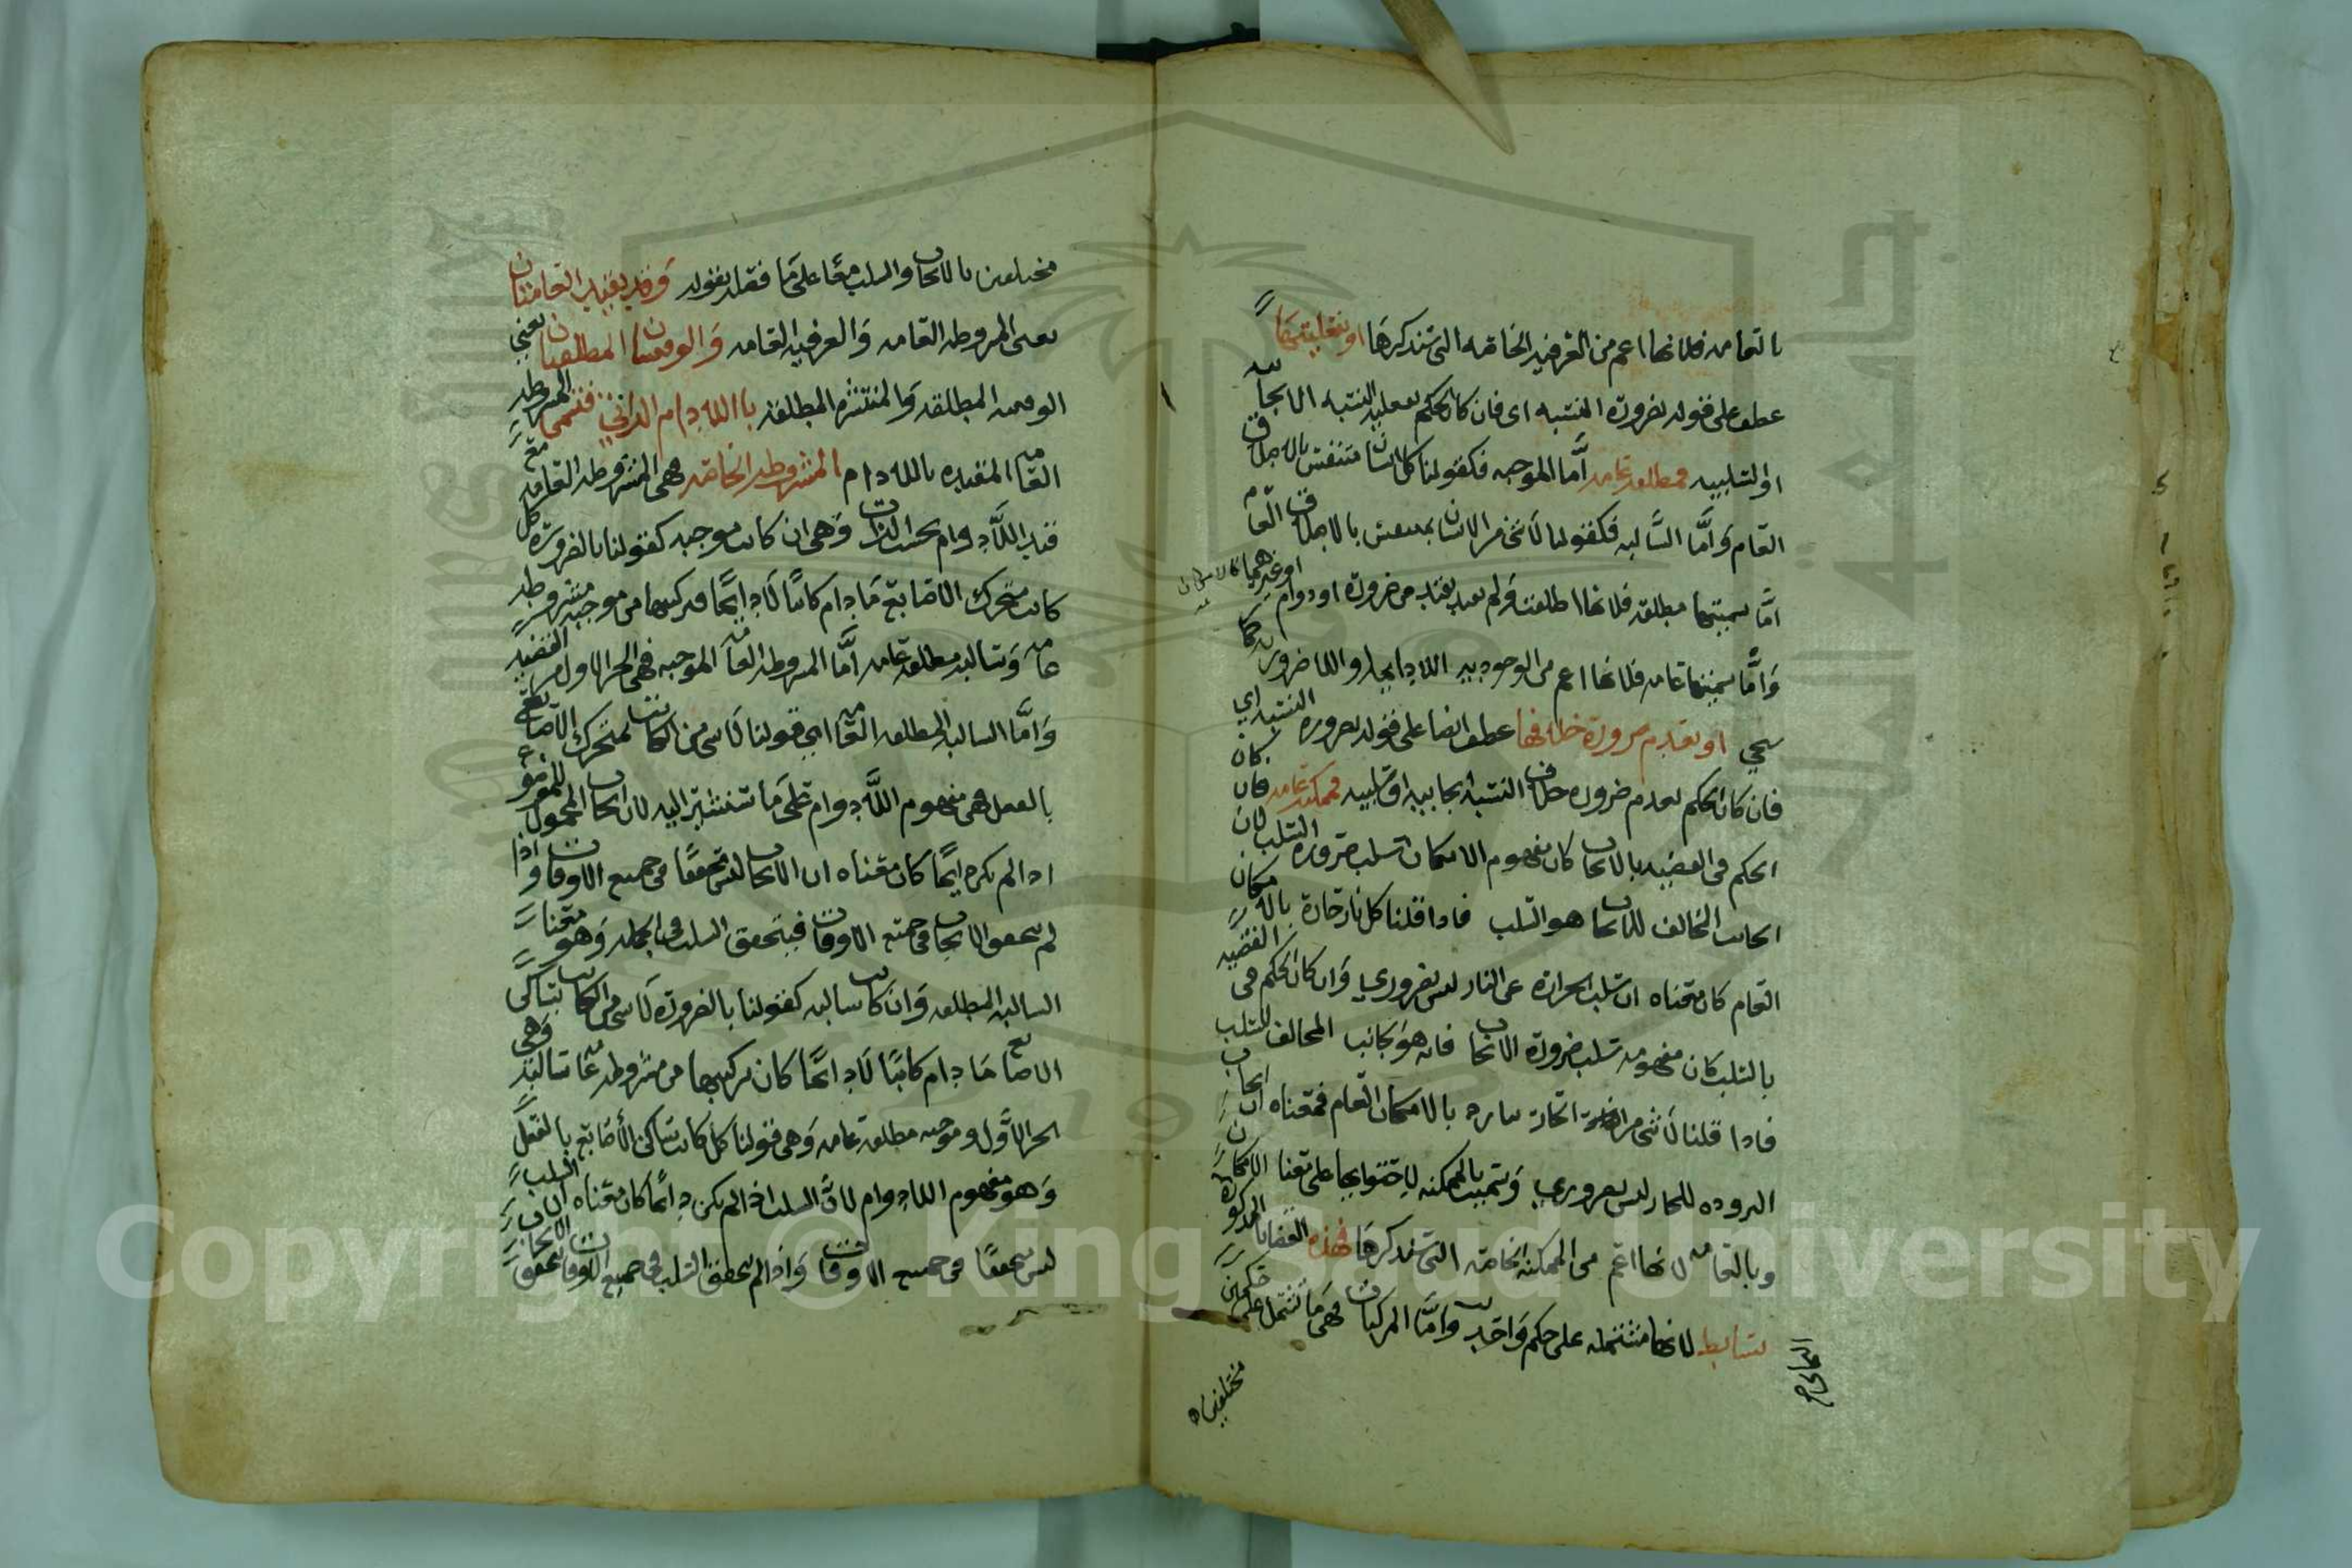 بالعامه فلانها اعم من العرفيه الخاصه التي سنذكرها او بفعليتها
عطف على قوله بضرورة النسبه اى فان كان الحكم بفعليه النسبه الايجابيه
او السلبيه فمطلقه عامه أمّا الموجبه فكقولنا كل انسان متنفس بالاطلاق
العام وَأمَّا السَّالبه فكقولنا لا شئ من الانسان بمتنفس بالاطلاق العام
امَّا تسميتها مطلقه فلانها اطلقت ولم تقيد بقيد من ضرورة او دوام او غيرهما
وَأمَّا تسميتها عامه فلانها اعم من الوجوديه اللادايمه واللاضروريه كما
سيجي او بعدم ضرورة خلافها عطف ايضا على قوله بضرورة النسبه اي
فان كان الحكم بعدم ضرورة خلاف النسبه ايجابيه او سلبيه فممكنه عامه فان كان
الحكم في القضيه بالايجاب كان مفهوم الامكان سلب ضرورة السلب لان
الجانب المخالف للايجاب هو السلب فاذا قلنا كل نار حارة بالامكان
العام كان معناه ان سلب الحرارة عن النار ليس بضروري وَان كان الحكم في القضيه
بالسلب كان مفهومه سلب ضرورة الايجاب فانه هو الجانب المخالف للسلب
فاذا قلنا لا شئ من الحار ببارد بالامكان العام فمعناه ان ايجاب
البروده للحار ليس بضروري وَسميت بالممكنه لاحتوايها على معنا الامكان
وبالعامه لانها اعم من الممكنه الخاصه التي سنذكرها فهذه القضايا المذكورة
بسايط لانها مشتمله على حكم وَاحد وأمَّا المركبات فهى ما تشتمل على حكمين
مختلفين
مختلفين بالايجاب والسلب معًا على مَا فصله بقوله وَقد يقيد العامتان
يعنى المشروطه العامه وَالعرفيه العامه وَالوقتيتان المطلقتان يعني
الوقتيه المطلقه وَالمنتشره المطلقه باللادوام الذاتي فتسمى المشروطه
العامه المقيده باللادوام المشروطه الخاصه فهى المشروطه العامه مع
قيد اللَّادوام بحسب الذات وَهى ان كانت موجبه كقولنا بالضرورة كل
كاتب متحرك الاصابع مَا دام كاتبًا لَا دايمًا فتركيبها من موجبه مشروطه
عامه وَسالبه مطلقه عامه أمَّا المشروطه العامه الموجبه فهى الجز الاول من القضيه
وَامَّا السالبه المطلقه العامه اي قولنا لا شى من الكاتب بمتحرك الاصابع
بالفعل فهى مفهوم اللَّادوام على مَا ستشير اليه لان ايجاب المحمول للموضوع
اذا لم يكن دايمًا كان معناه ان الايجاب ليس متحققًا في جميع الاوقات واذا
لم يتحقق الايجاب في جميع الاوقات فيتحقق السلب في الجمله وَهو معنا
السالبه المطلقه وَان كانت سالبه كقولنا بالضرورة لَا شى من الكاتب بساكن
الاصابع مَا دام كاتبًا لَا دايمًا كان تركيبها من مشروطه عامه سالبه وهي
الجز الاوَّل وموجبه مطلقه عامه وَهى قولنا كل كاتب ساكن الأصابع بالفعل
وَهو مفهوم اللادوام لانَّ السلب اذا لم يكن دايمًا كان معناه ان السلب
ليس متحققًا في جميع الاوقات وَاذا لم يتحقق السلب في جميع الاوقات يتحقق الايجاب
Copyright © King Saud University